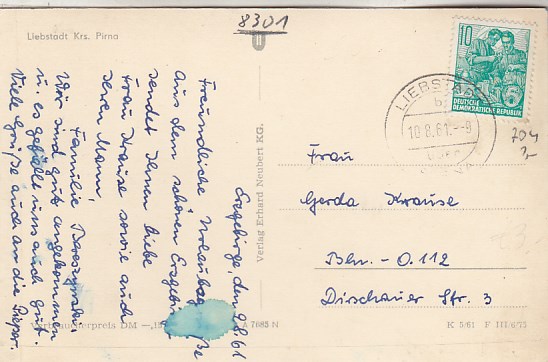 8301
Liebstadt Krs. Pirna
Erzgebirge, den 9.8.61
Freundliche Urlaubsgrüße
Aus dem schönen Erzgebirge
sendet Ihnen liebe
Frau Krause sowie auch
Ihren Mann,
Familie
Wir sind gut angekommen
u. es gefällt uns auch gut.
Viele Grüße auch an die
Verbraucherpreis DM
A 7683 N
Verlag Erhard Neubert KG.
10
DEUTSCHE
DEMOKRATISCHE REPUBLIK
LIEBSTADT
10.8.61.-9
704
Frau
Gerda Krause
Bln.-O.112
Dirschauer Str. 3
K 5/61 F III/6/75